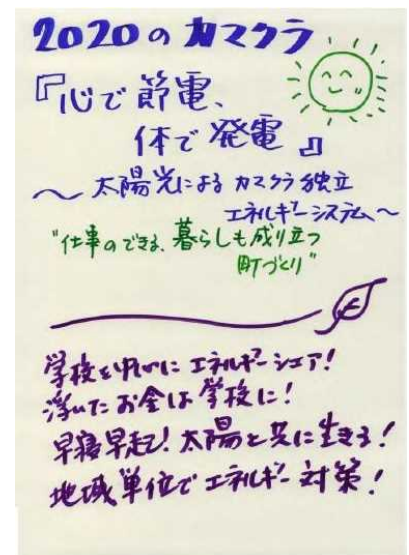 2020のカマクラ
『心で節電、
体で発電』
～太陽光によるカマクラ独立
エネルギーシステム～
"仕事のできる、暮らしも成り立つ
町づくり"
学校を中心にエネルギーシェア!
浮いたお金は学校に!
早寝早起!太陽と共に生きる!
地域単位でエネルギー対策!